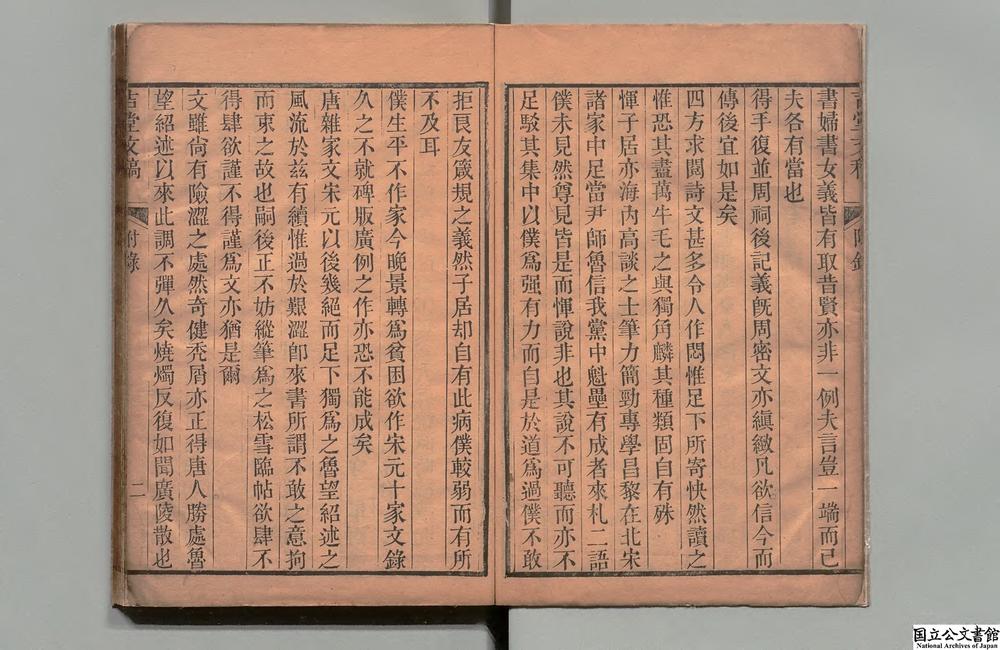 書婦書女義皆有取昔賢亦非一例夫言豈一端而已
夫各有當也
得手復並周祠後記義旣周密文亦縝緻凡欲信今而
傳後宜如是矣
四方求閱詩文甚多令人作悶惟足下所寄快然讀之
惟恐其盡萬牛毛之與獨角麟其種類固自有殊
惲子居亦海內高談之士筆力簡勁專學昌黎在北宋
諸家中足當尹師魯信我黨中魁壘有成者來札二語
僕未見然尊見皆是而惲說非也其說不可聽而亦不
足駁其集中以僕爲强有力而自是於道爲過僕不敢
拒良友箴規之義然子居却自有此病僕較弱而有所
不及耳
僕生平不作家今晚景轉爲貧困欲作宋元十家文錄
久之不就碑版廣例之作亦恐不能成矣
唐雜家文宋元以後幾絕而足下獨爲之魯望紹述之
風流於兹有續惟過於艱澀卽來書所謂不敢之意拘
而束之故也嗣後正不妨縱筆爲之松雪臨帖欲肆不
得肆欲謹不得謹爲文亦猶是爾
文雖尙有險澀之處然奇健秃屑亦正得唐人勝處魯
望紹述以來此調不彈久矣燒燭反復如聞廣陵散也
堂文稿
附錄
二
国立公文書館
National Archives of Japan